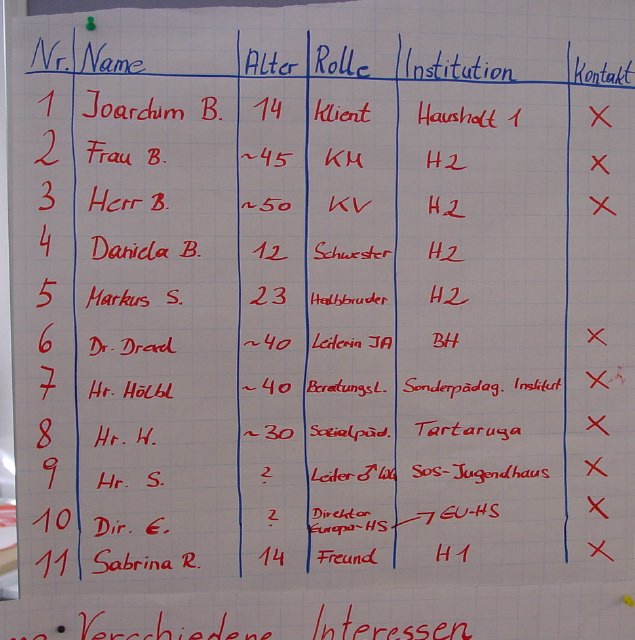 Nr. Name Alter Rolle Institution Kontakt
1 Joarchim B. 14 Klient Haushalt 1 X
2 Frau B. ~45 KM H2 X
3 Herr B. ~50 KV H2 X
4 Daniela B. 12 Schwester H2
5 Markus S. 23 Halbbruder H2
6 Dr. ~40 Leiterin JA BH X
7 Hr. Hölbl ~40 Beratungsl. Sonderpädag. Institut X
8 Hr. W. ~30 Sozialpäd. Tartaruga X
9 Hr. S. ? Leiter ♂ WG SOS-Jugendhaus X
10 Dir. E. ? Direktor Europa-HS → EU-HS X
11 Sabrina R. 14 Freund H1 X
• Verschiedene Interessen